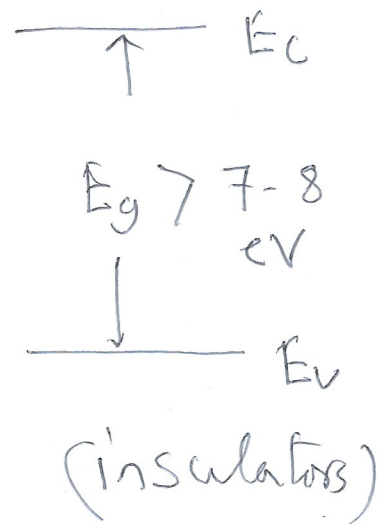 Ec
Eg > 7-8
eV
Ev
(insulators)